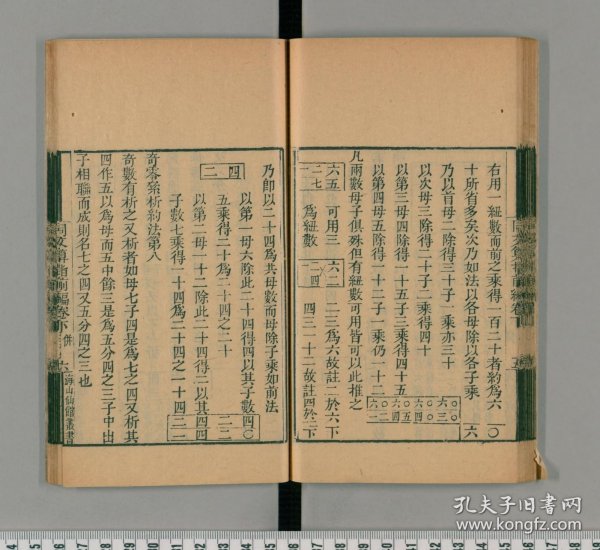 右用一紐數而前之乘得一百二十者約為六〇
十所省多矣次乃如法以各母除以各子乘 六
乃以首母二除得三十子一乘亦三十
以次母三除得二十子二乘得四十
以第三母四除得一十五子三乘得四十五
以第四母五除得一十二子一乘仍一十二
凡兩數母子俱殊但有紐數可用皆可以此推之
可用三
為紐數
四三一十二故註四於二下
乃即以二十四為共母數而母除子乘如前法
以第一母六除此二十四得四以其子數
五乘得二十為二十四之二十
以第二母一十二除此二十四得二以其
子數七乘得一十四為二十四之一十四
奇零纍析約法第八
奇數有析之又析者如母七子四是為七之四又析其
四作五以為母而五中餘三是為五分四之三子中出
子相聯而成則名七之四又五分四之三也
同文算指前編卷下
海山仙館叢書
孔夫子旧书网
www.kongfz.com